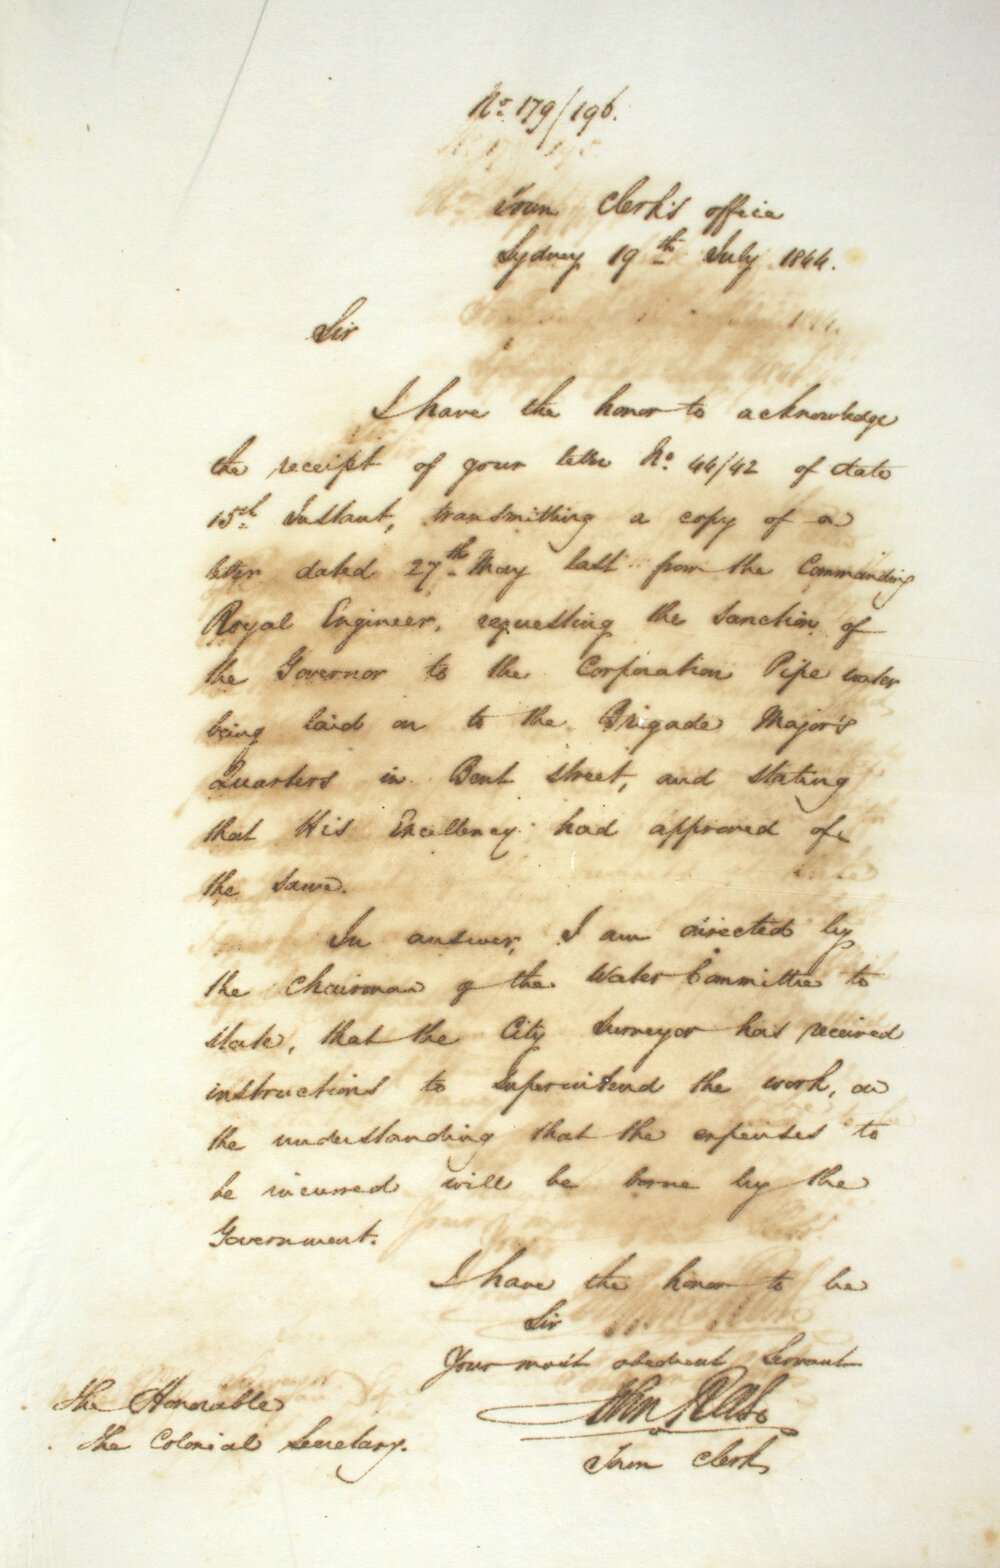 No. 179/196.
Town Clerk's office
Sydney 19th July 1844.
Sir
I have the honor to acknowledge
the receipt of your letter No. 44/42 of date
15th Instant, transmitting a copy of a
letter dated 27th May last from the Commanding
Royal Engineer, requesting the sanction of
the Governor to the Corporation Pipe water
being laid on to the Brigade Major's
Quarters in Bent street, and stating
that His Excellency had approved of
the same.
In answer, I am directed by
the Chairman of the Water Committee to
state, that the City Surveyor has received
instructions to superintend the work, on
the understanding that the expenses to
be incurred will be borne by the
Government.
I have the honor to be
Sir
Your most obedient Servant
John
Town Clerk
The Honorable
The Colonial Secretary.